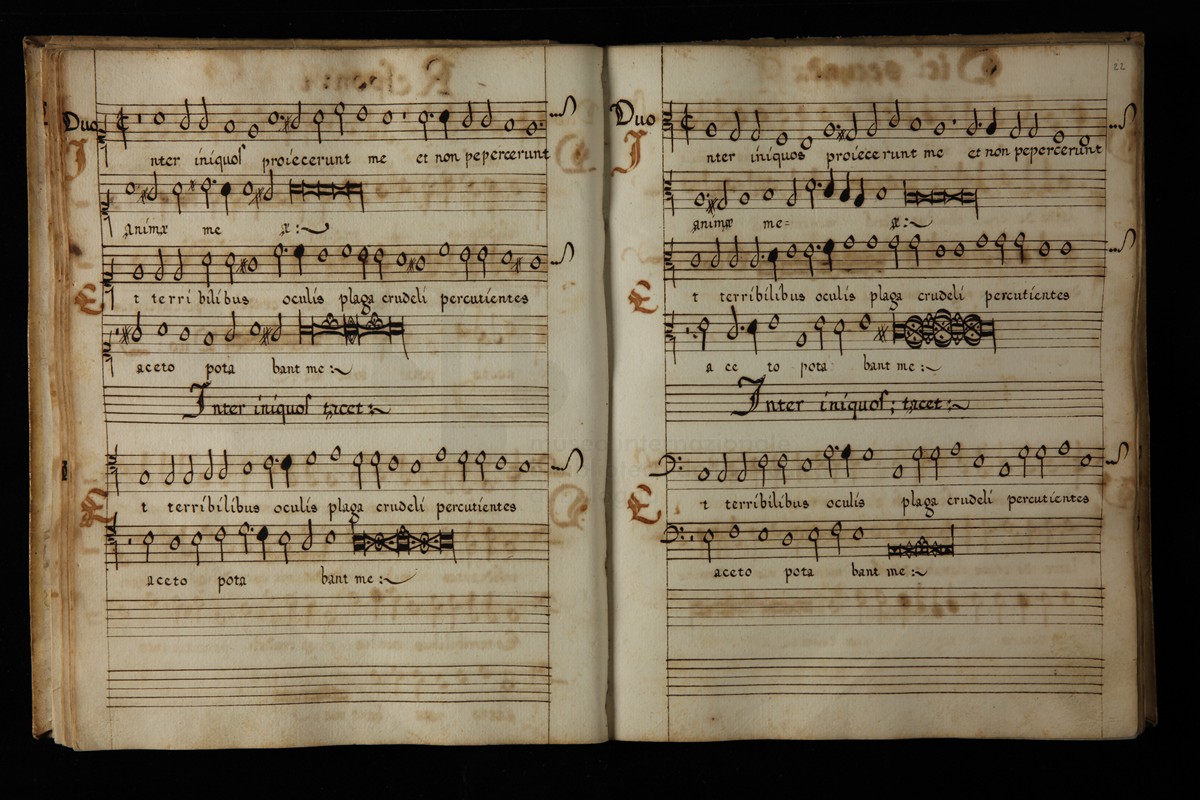 Duo
Inter iniquos proiecerunt me et non pepercerunt
animæ meæ :~
Et terribilibus oculis plaga crudeli percutientes
aceto pota bant me :~
Inter iniquos tacet :~
Et terribilibus oculis plaga crudeli percutientes
aceto pota bant me :~
22
Duo
Inter iniquos proiecerunt me et non pepercerunt
animæ me= æ :~
Et terribilibus oculis plaga crudeli percutientes
a ce to pota bant me :~
Inter iniquos ; tacet :~
Et terribilibus oculis plaga crudeli percutientes
aceto pota bant me :~
museo internazionale